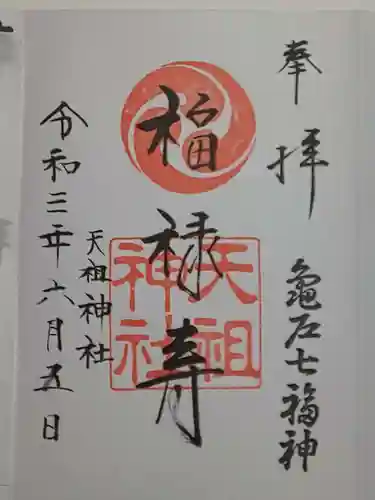 奉拝
亀石七福神
福禄寿
天祖神社
天祖神社
令和三年六月五日